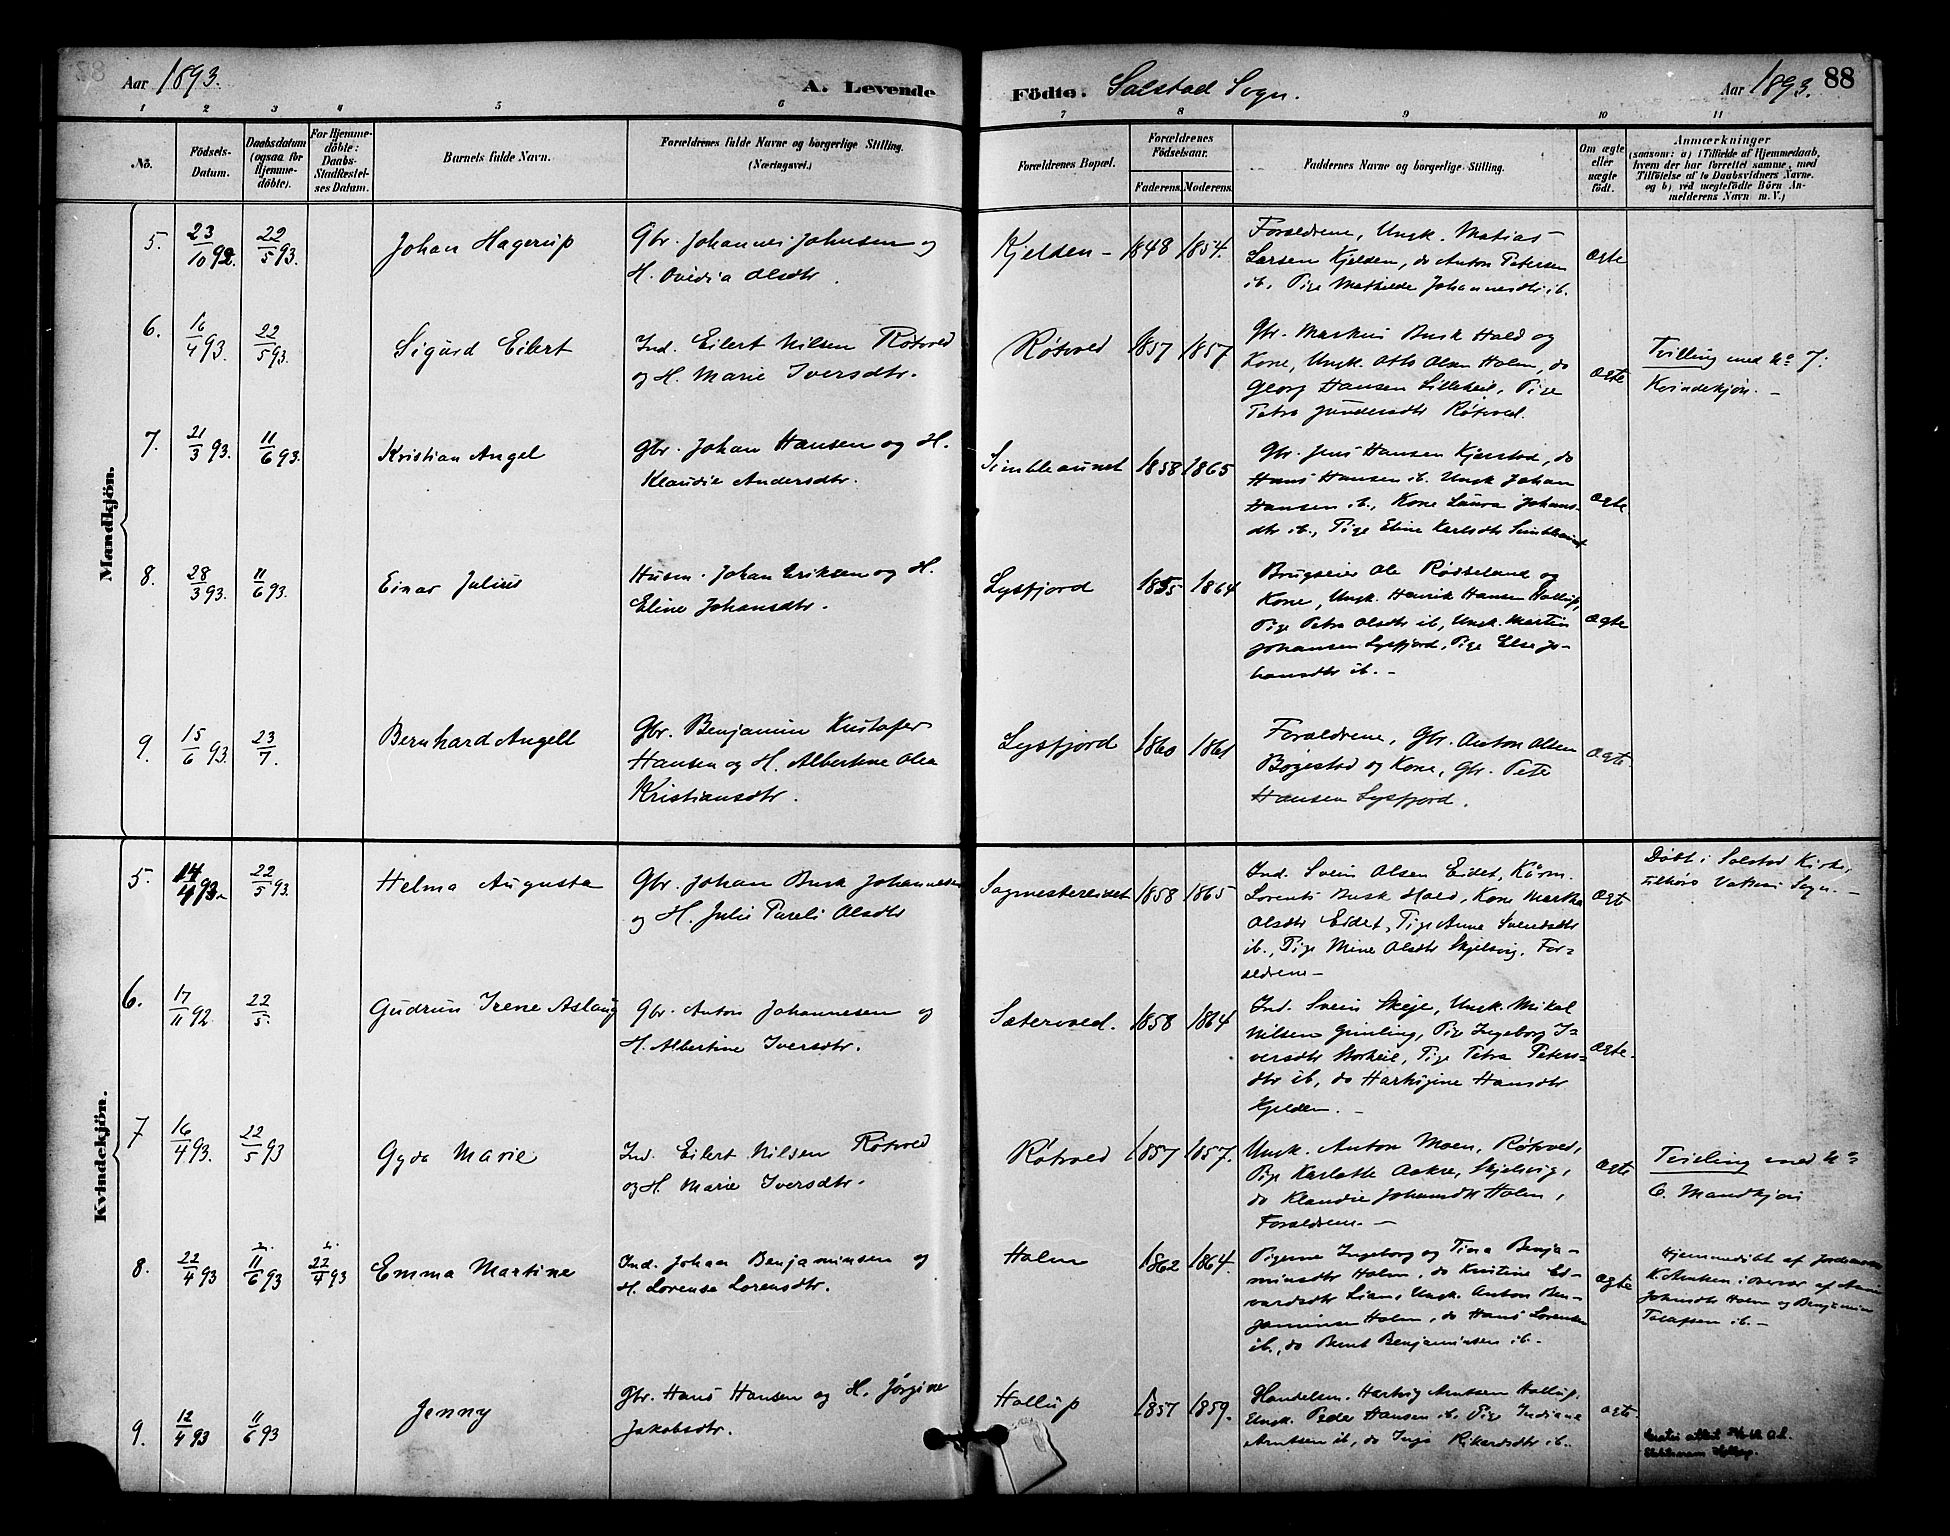 Aar 1893. A. Levende Födte. Solstad Sogn. Aar 1893. 88
1 2 3 4 5 6 7 8 9 10 11
No. Födsels-Datum. Daabsdatum (ogsaa for Hjemme-döbte). For Hjemme-döbte: Daabs-Stadfæstel-ses Datum. Barnets fulde Navn. Forældrenes fulde Navne og borgerlige Stilling. (Næringsvei.) Forældrenes Bopæl. Forældrenes Födselsaar. Faderens. Moderens. Faddernes Navne og borgerlige Stilling. Om ægte eller uægte födt. Anmærkninger (saasom: a) i Tilfælde af Hjemmedaab, hvem der har forrettet samme, med Tilföielse af to Daabsvidners Navne. og b) ved uægtefödte Börn An-melderens Navn m. V.)
Mandkjön.
5. 23/10 92. 22/5 93. Johan Hagerup Gbr. Johannes Johnsen og Kjelden - 1848 1854. Forældrene, Ungk. Matias
H. Ovidia Olsdtr. Larsen Kjelden, do Anton Petersen ægte
ib. Pige Mathilde Johannesdtr ib.
6. 16/4 93. 22/5 93. Sigurd Eilert Ind. Eilert Nilsen Rötvold Rötvold 1857 1857 Gbr. Markus Busk Hald og
og H. Marie Iversdtr. Kone, Ungk. Otto Olsen Holm, do ægte Tvilling med No 7.
Georg Hansen Lilleheil, Pige Kvindekjön. -
Petra Gundersdtr Rötvold.
7. 21/3 93. 11/6 93. Kristian Angel Gbr. Johan Hansen og H. Simbleaunet 1858 1865 Gbr. Jens Hansen Kjerstad, do
Klaudie Andersdtr. Hans Hansen ib. Ungk Johan
Hansen ib., Kone Laura Johans- ægte
dtr ib., Pige Eline Karlsdtr Simbleaunet
8. 28/3 93. 11/6 93. Einar Julius Husm. Johan Eriksen og H. Lysfjord 1855 1864 Brugseier Ole Rödseland og
Eline Johansdtr. Kone, Ungk. Henrik Hansen Hallup,
Pige Petra Olsdtr ib, Ungk. Martin ægte
Johansen Lysfjord, Pige Else Jo-
hansdtr ib. -
9. 15/6 93. 23/7. Bernhard Angell Gbr. Benjamin Kristofer Lysfjord 1860 1861 Forældrene, Gbr. Anton Olsen
Hansen og H. Albertine Olea Bögestad og Kone, Gbr. Peter ægte
Kristiansdtr. Hansen Lysfjord.
Kvindekjön.
5. 14/4 93. 22/5 93. Helma Augusta Gbr. Johan Busk Johannesen Sagmestereidet 1858 1865 Ind. Svein Olsen Eidet, Kårm. ægte Döbt i Solstad Kirke,
og H. Julie Pareli Olsdtr Lorents Busk Hald, Kone Martha tilhörer Vatsen Sogn. -
Olsdtr Eidet, Pige Anne Svendsdtr
ib., Pige Mine Olsdtr Skjelvig. For-
ældrene -
6. 17/11 92. 22/5. Gudrun Irene Aslaug Gbr. Anton Johannesen og Sætervold. 1858 1864 Ind. Svein Skeje, Ungk. Mikal
H. Albertine Iversdtr. Nilsen Grimling, Pige Ingeborg I-
versdtr Storheil, Pige Petra Peters- ægte.
dtr ib, do Hartvigine Hansdtr
Kjelden. -
7 16/4 93. 22/5 93 Gyda Marie Ind. Eilert Nilsen Rötvold Rötvold 1857 1857. Ungk. Anton Moen, Rötvold,
og H. Marie Iversdtr. Pige Karlotte Aakre, Skjelvig, ægte Tvilling med No
do Klaudie Johansdtr Holm, 6. Mandkjön
Forældrene. -
8. 22/4 93 11/6 93 22/4 93 Emma Martine Ind. Johan Benjaminsen og Holm 1862 1864. Pigerne Ingeborg og Tina Benja-
H. Lorense Lorensdtr. minsdtr Holm, do Kristine Ed- ægte Hjemmedöbt af Jordemoder
vardsdtr Lian, Ungk. Anton Ben- K. Arntsen i overvær af
jaminsen Holm, do Hans Lorensen Johnsdtr Holm og Benjamin
ib., do Bernt Benjaminsen ib. - Tolafsen ib. -
9. 12/4 93 11/6 93 Jenny Gbr. Hans Hansen og H. Jörgine Hallup 1857 1859. Handelsm. Hartvig Arntsen Hallup, ægte.
Jakobsdtr. Ungk. Peder Hansen ib. Pige Indiane
Arntsen ib, do Inga Rikardsdtr ib.